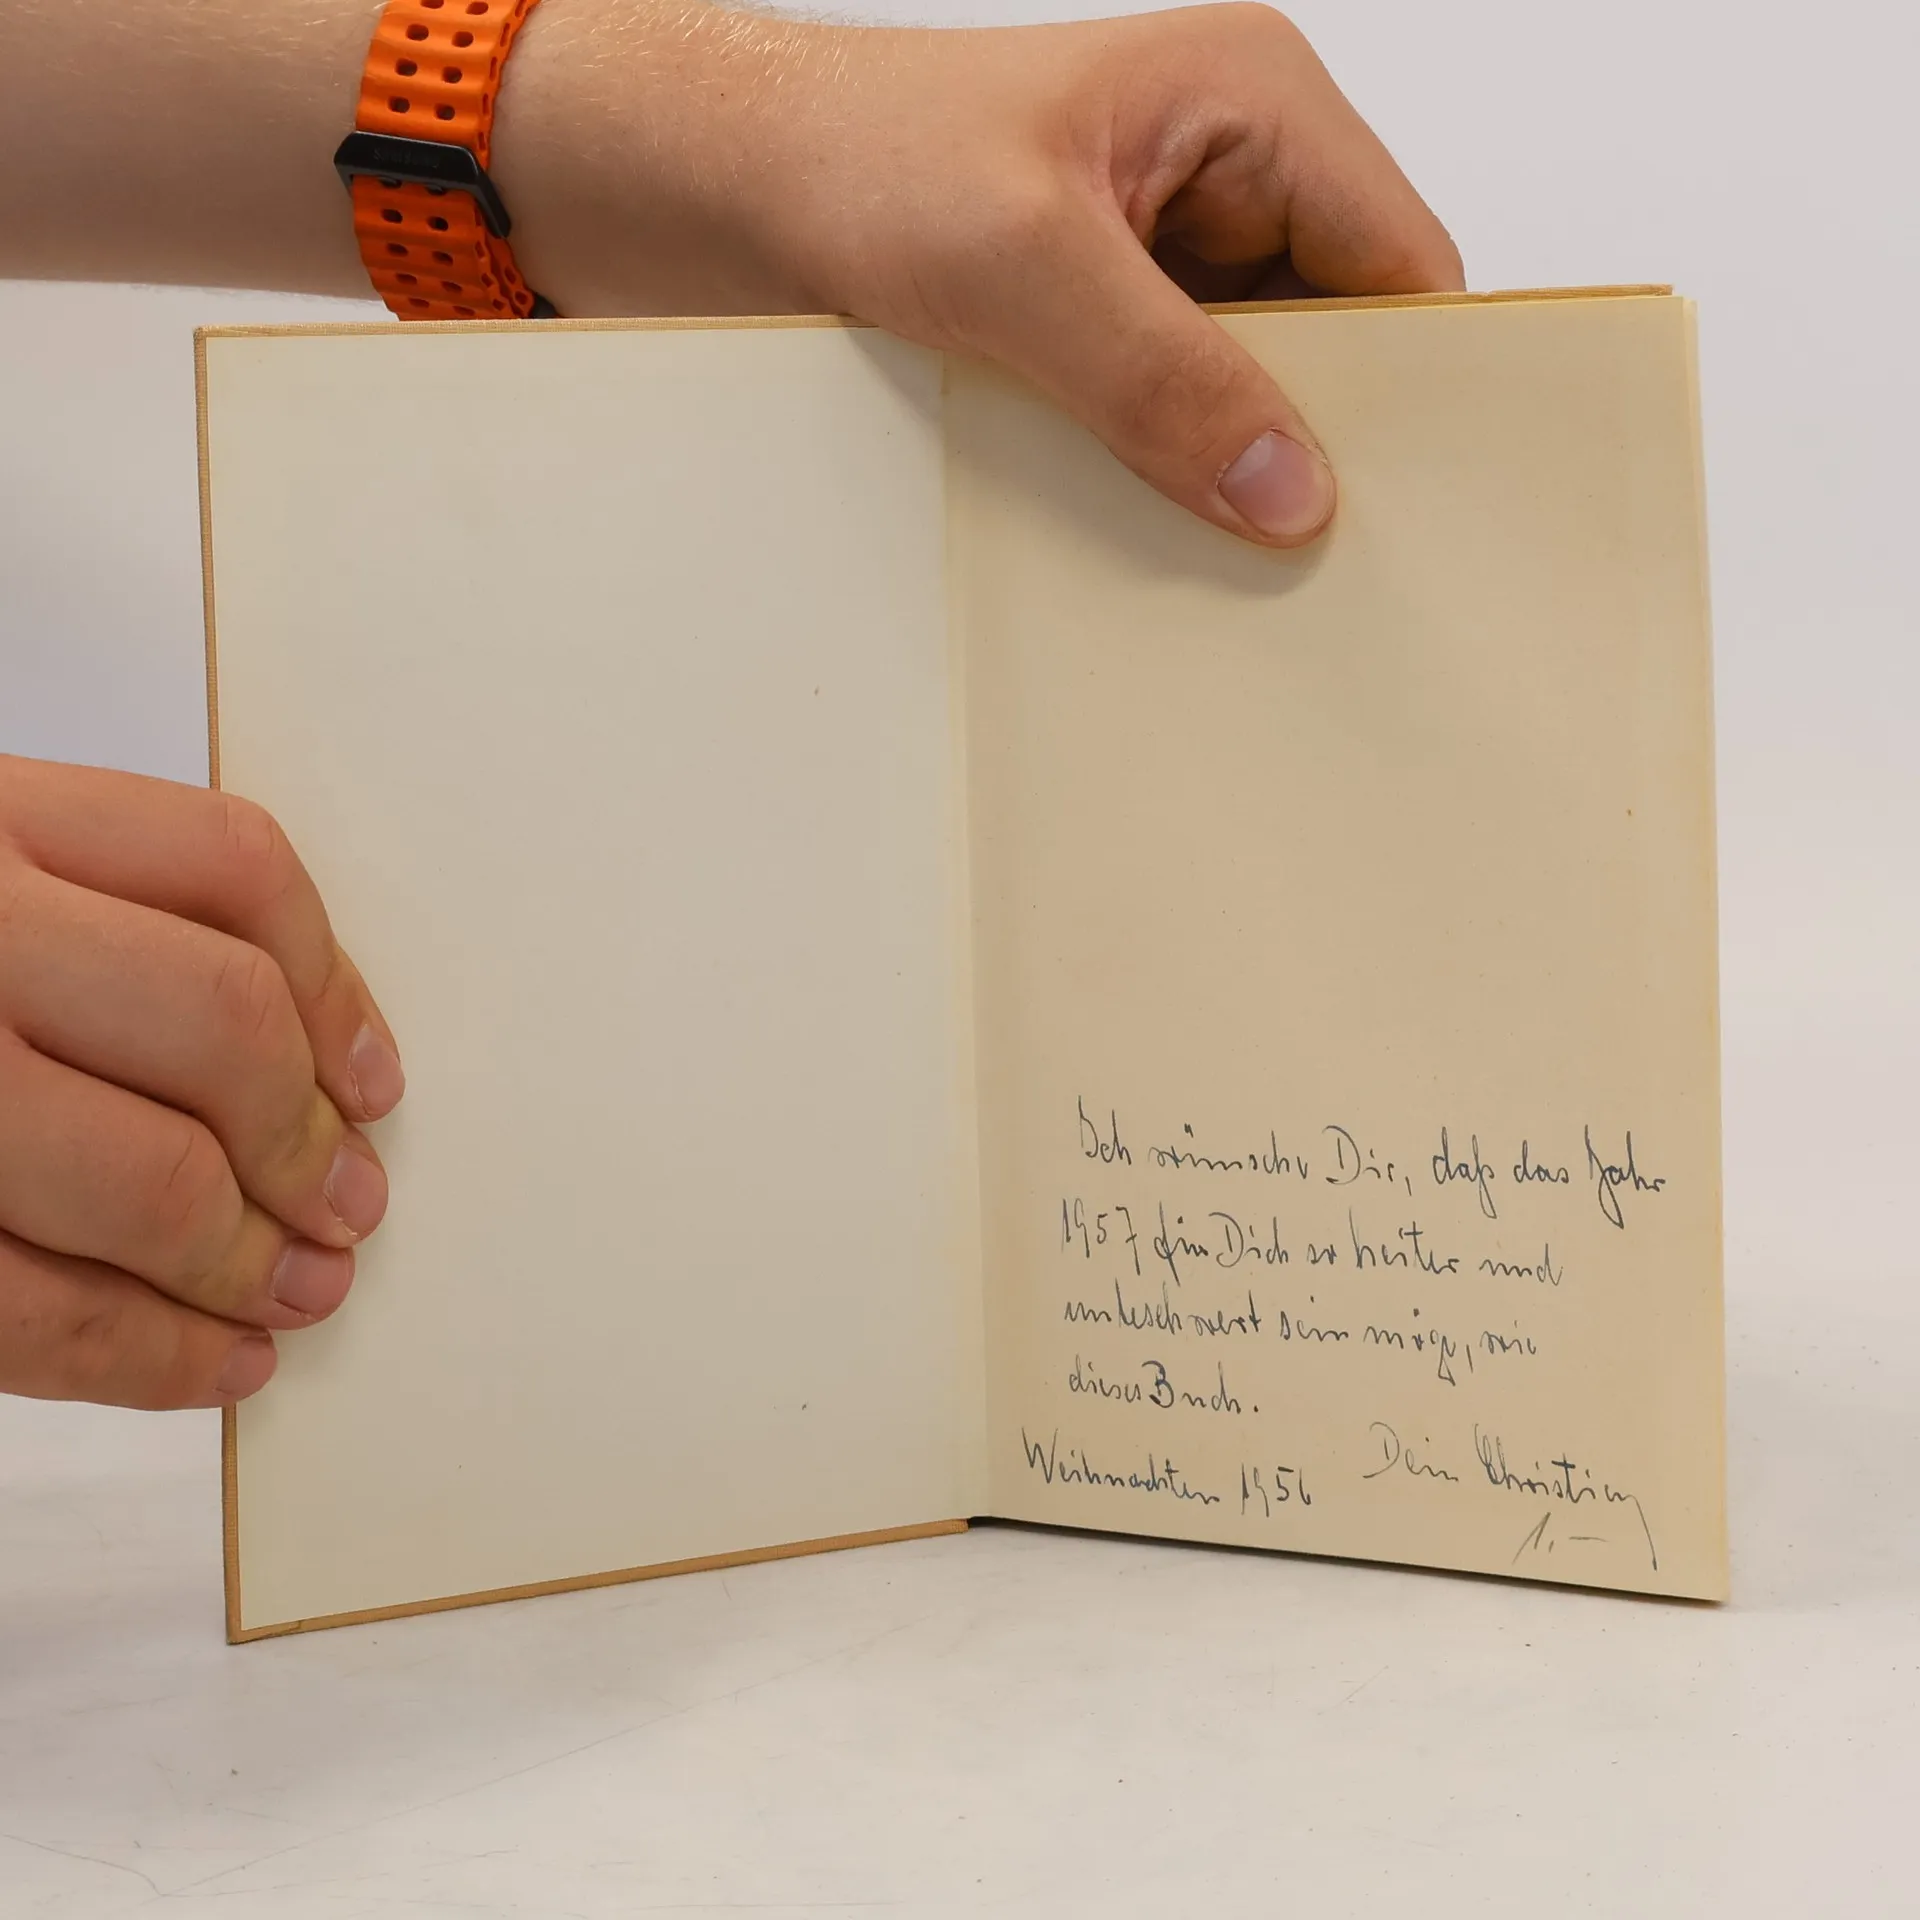 SAMSUNG
Ich wünsche Dir, daß das Jahr
1957 für Dich so heiter und
unbeschwert sein möge, wie
dieses Buch.
Weihnachten 1956 Dein Christian
1.-